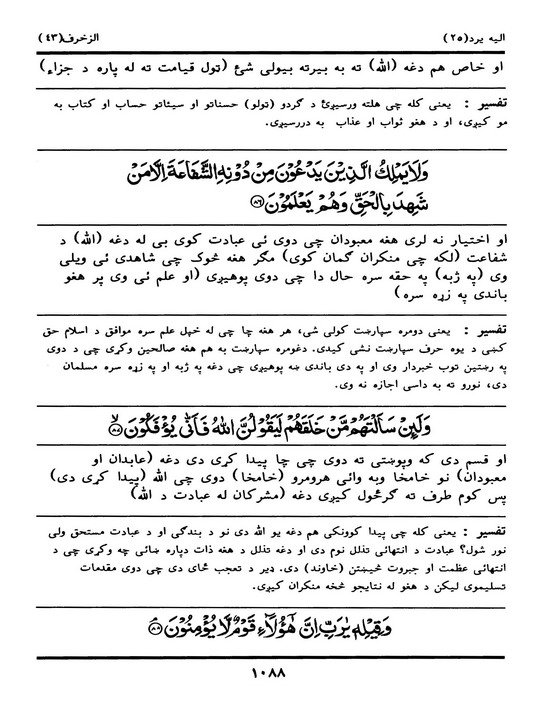 الیه یرد(٢٥) الزخرف(٤٣)
او خاص هم دغه (الله) ته به بیرته بیولی شئ (ټول قیامت ته له پاره د جزاء)
تفسیر : یعنی کله چی هلته ورسیږئ د ګردو (ټولو) حسناتو او سیئاتو حساب او کتاب به
مو کیږی، او د هغو ثواب او عذاب به دررسیږی.
وَلَا يَمْلِكُ الَّذِيْنَ يَدْعُوْنَ مِنْ دُوْنِهِ الشَّفَاعَةَ اِلَّا مَنْ
شَهِدَ بِالْحَقِّ وَهُمْ يَعْلَمُوْنَ ﴿٨٦﴾
او اختیار نه لری هغه معبودان چی دوی ئی عبادت کوی بی له دغه (الله) د
شفاعت (لکه چی منکران ګمان کوی) مګر هغه څوک چی شاهدی ئی ویلی
وی (په ژبه) په حقه سره حال دا چی دوی پوهیږی (او علم ئی وی پر هغو
باندی په زړه سره)
تفسیر : یعنی دومره سپارښت کولی شی، هر هغه چا چی له خپل علم سره موافق د اسلام حق
کښی د یوه حرف سپارښت نشی کیدی. دغومره سپارښت به هم هغه صالحین وکړی چی د دوی
په رښتین توب خبردار وی او په دی باندی ښه پوهیږی چی دغه په ژبه او په زړه سره مسلمان
دی، نورو ته به داسی اجازه نه وی.
وَلَئِنْ سَاَلْتَهُمْ مَّنْ خَلَقَهُمْ لَيَقُوْلُنَّ اللّٰهُ فَاَنّٰى يُؤْفَكُوْنَ ﴿٨٧﴾
او قسم دی که وپوښتی ته دوی چی چا پیدا کړی دی دغه (عابدان او
معبودان) نو خامخا وبه وائی هرومرو (خامخا) دوی چی الله (پیدا کړی دی)
پس کوم طرف ته ګرځول کیږی دغه (مشرکان له عبادت د الله)
تفسیر : یعنی کله چی پیدا کوونکی هم دغه یو الله دی نو د بندګی او د عبادت مستحق ولی
نور شول؟ عبادت د انتهائی تذلل نوم دی او دغه تذلل د هغه ذات دپاره ښائی چه وکړی چی د
انتهائی عظمت او جبروت څښتن (خاوند) دی. ډیر د تعجب ځای دی چی دوی مقدمات
تسلیموی لیکن د هغو له نتایجو څخه منکران کیږی.
وَقِيْلِهٖ يٰرَبِّ اِنَّ هٰٓؤُلَآءِ قَوْمٌ لَّا يُؤْمِنُوْنَ ﴿٨٨﴾
١٠٨٨